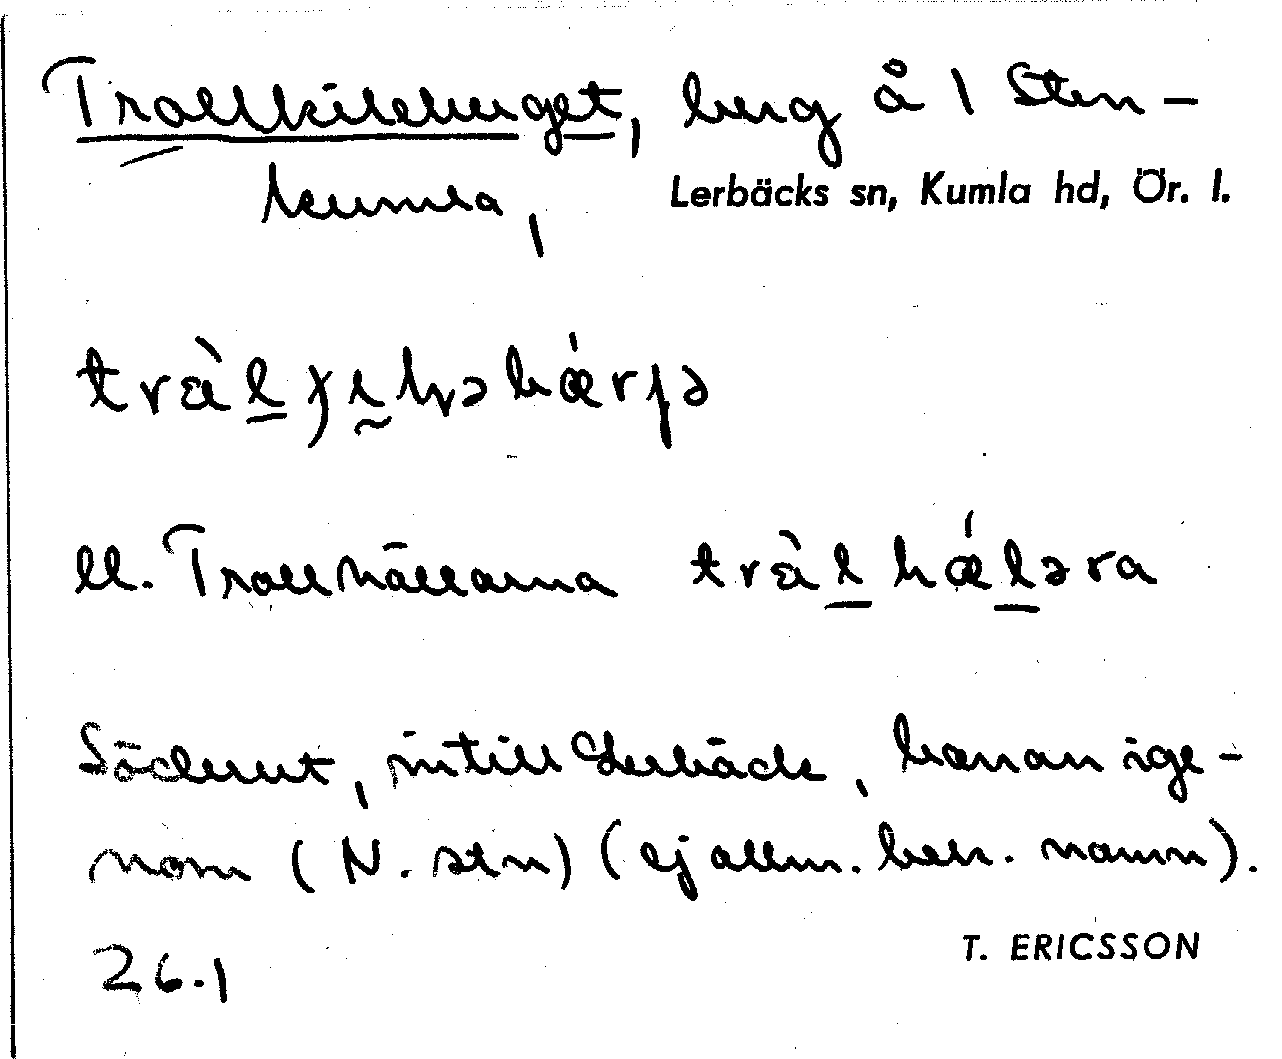 Trollkileberget, berg å 1 Sten-
kumla,
Lerbäcks sn, Kumla hd, Ör. l.
ll. Trollhällarna
Söderut, intill Lerbäck, banan ige-
nom (N. stn) (ej allm. bek. namn).
26.1
T. ERICSSON